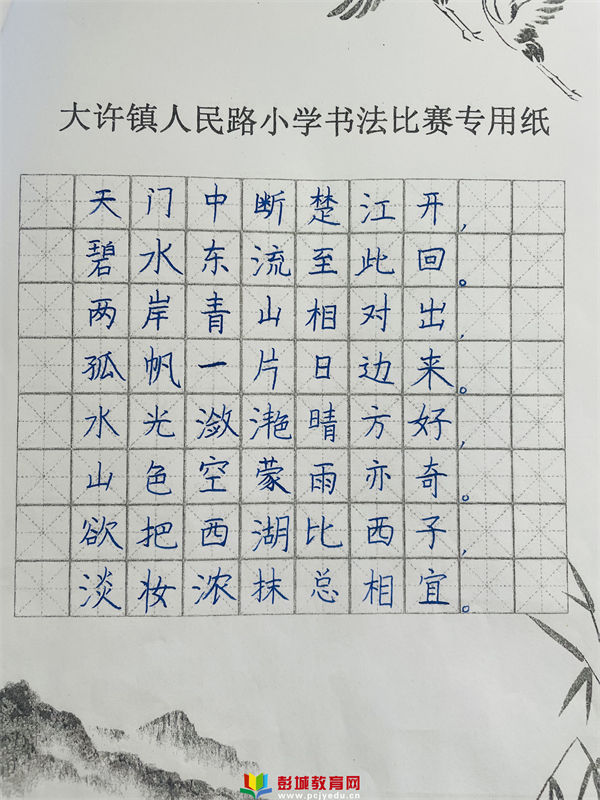 大许镇人民路小学书法比赛专用纸
天门中断楚江开，
碧水东流至此回。
两岸青山相对出，
孤帆一片日边来。
水光潋滟晴方好，
山色空蒙雨亦奇。
欲把西湖比西子，
淡妆浓抹总相宜。
彭城教育网
www.pcjyedu.cn